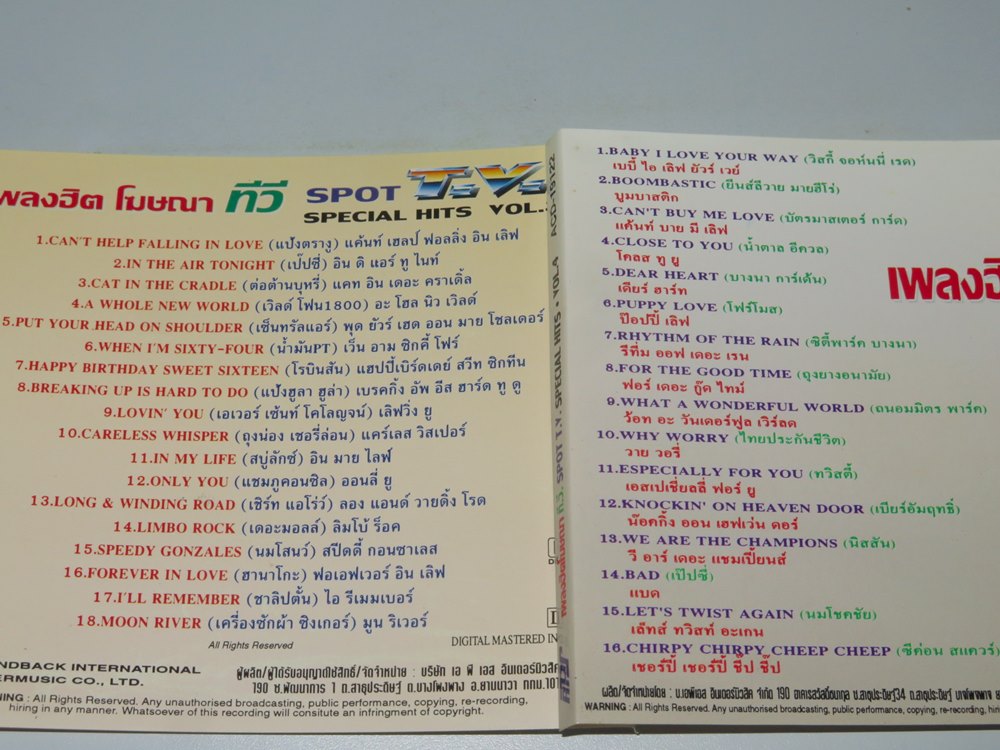 เพลงฮิต โฆษณา ทีวี SPOT T.V.
SPECIAL HITS VOL.
1.CAN'T HELP FALLING IN LOVE (แป้งตรางู) แค้นท์ เฮลป ฟอลลิ่ง อิน เลิฟ
2.IN THE AIR TONIGHT (เป๊ปซี่) อิน ดิ แอร์ ทู ไนท์
3.CAT IN THE CRADLE (ต่อต้านบุหรี่) แคท อิน เดอะ คราเดิ้ล
4.A WHOLE NEW WORLD (เวิลด์ โฟน1800) อะ โฮล นิว เวิลด์
5.PUT YOUR HEAD ON SHOULDER (เซ็นทรัลแอร์) พุด ยัวร์ เฮด ออน มาย โชลเดอร์
6.WHEN I'M SIXTY-FOUR (น้ำมันPT) เว็น อาม ซิกตี้ โฟร์
7.HAPPY BIRTHDAY SWEET SIXTEEN (โรบินสัน) แฮปปี้เบิร์ดเดย์ สวีท ซิกทีน
8.BREAKING UP IS HARD TO DO (แป้งฮูลา ฮูล่า) เบรคกิ้ง อัพ อีส ฮาร์ด ทู ดู
9.LOVIN' YOU (เอเวอร์ เซ้นท์ โคโลญจน์) เลิฟวิ่ง ยู
10.CARELESS WHISPER (ถุงน่อง เชอรี่ล่อน) แคร์เลส วิสเปอร์
11.IN MY LIFE (สบู่ลักซ์) อิน มาย ไลฟ์
12.ONLY YOU (แชมภูคอนซิล) ออนลี่ ยู
13.LONG & WINDING ROAD (เชิร์ท แอโร่ว์) ลอง แอนด์ วายดิ้ง โรด
14.LIMBO ROCK (เดอะมอลล์) ลิมโบ้ ร็อค
15.SPEEDY GONZALES (นมโสนว์) สปีดดี้ กอนซาเลส
16.FOREVER IN LOVE (ฮานาโกะ) ฟอเอฟเวอร์ อิน เลิฟ
17.I'LL REMEMBER (ซาลิปตั้น) ไอ รีเมมเบอร์
18.MOON RIVER (เครื่องซักผ้า ซิงเกอร์) มูน ริเวอร์
All Rights Reserved
DIGITAL MASTERED IN
NDBACK INTERNATIONAL
ERMUSIC CO., LTD.
ผู้ผลิต/ผู้ได้รับอนุญาตใช้สิทธิ์/จัดจำหน่าย : บริษัท เอ พี เอส อินเตอร์มิวสิค
190 ซ.พัฒนาการ 1 ถ.สาธุประดิษฐ์ ต.บางโพงพาง อ.ยานนาวา กทม.101
NING : All Rights Reserved. Any unauthorised broadcasting, public performance, copying, re-recording,
hiring in any manner. Whatsoever of this recording will consitute an infringment of copyright.
เพลงฮิตโฆษณา ทีวี SPOT T.V. SPECIAL HITS • VOL.4 ACD-19122
1.BABY I LOVE YOUR WAY (วิสกี้ จอห์นนี่ เรด)
เบบี้ ไอ เลิฟ ยัวร์ เวย์
2.BOOMBASTIC (ยีนส์ลีวาย มายฮีโร่)
บูมบาสติก
3.CAN'T BUY ME LOVE (บัตรมาสเตอร์ การ์ด)
แค้นท์ บาย มี เลิฟ
4.CLOSE TO YOU (น้ำตาล อีควล)
โคลส ทู ยู
5.DEAR HEART (บางนา การ์เด้น)
เดียร์ ฮาร์ท
6.PUPPY LOVE (โฟร์โมส)
ป๊อปปี้ เลิฟ
7.RHYTHM OF THE RAIN (ซิตี้พาร์ค บางนา)
รีที่ม ออฟ เดอะ เรน
8.FOR THE GOOD TIME (ถุงยางอนามัย)
ฟอร์ เดอะ กู๊ด ไทม์
9.WHAT A WONDERFUL WORLD (ถนอมมิตร พาร์ค)
ว้อท อะ วันเดอร์ฟูล เวิร์ลด
10.WHY WORRY (ไทยประกันชีวิต)
วาย วอรี่
11.ESPECIALLY FOR YOU (ทวิสตี้)
เอสเปเชี่ยลลี่ ฟอร์ ยู
12.KNOCKIN' ON HEAVEN DOOR (เบียร์อัมฤทธิ์)
น๊อคกิ้ง ออน เฮฟเว่น ดอร์
13.WE ARE THE CHAMPIONS (นิสสัน)
วี อาร์ เดอะ แชมเปี้ยนส์
14.BAD (เป๊ปซี่)
แบด
15.LET'S TWIST AGAIN (นมโชคชัย)
เล็ทส์ ทวิสท์ อะเกน
16.CHIRPY CHIRPY CHEEP CHEEP (ซีค่อน สแควร์)
เชอร์ปี้ เชอร์ปี้ ชี๊ป ชี๊ป
เพลงฮิ
ผลิต/จัดจำหน่ายโดย : บ.เอพีเอส อินเตอร์มิวสิค จำกัด 190
WARNING : All Rights Reserved. Any unauthorised broadcasting, public performance, copying, re-recording, hiri